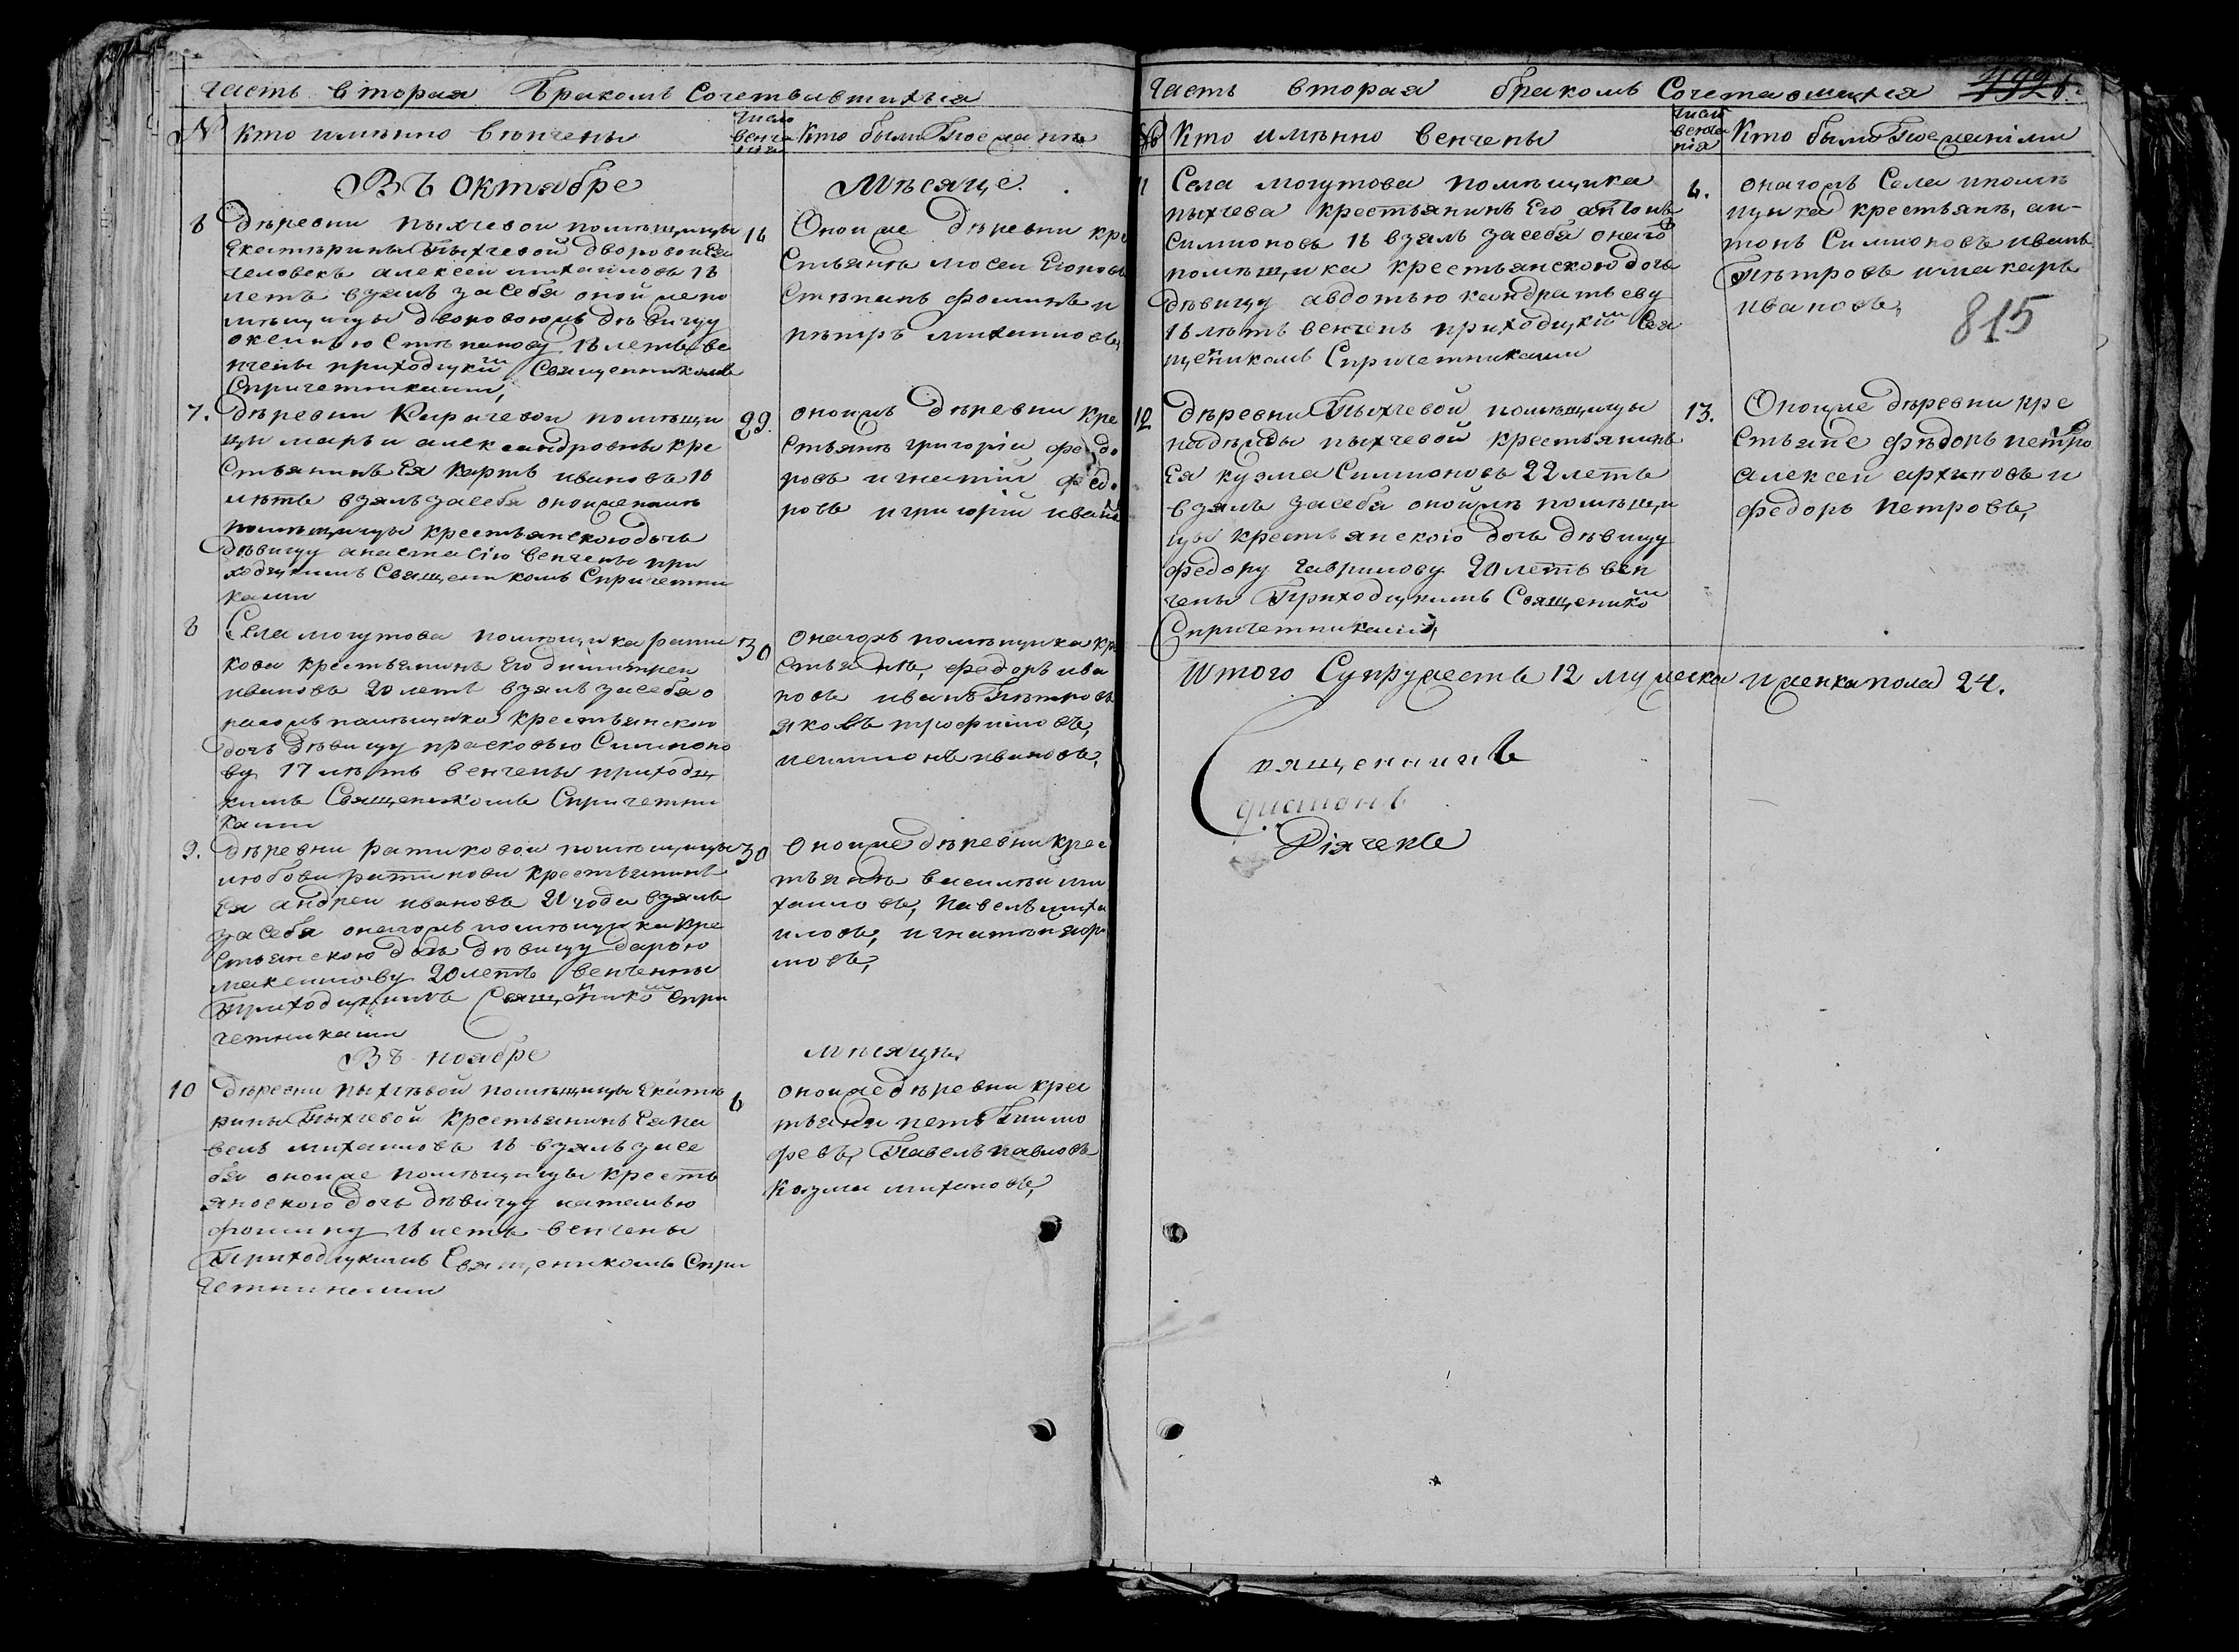 Часть вторая Бракомъ Сочетавшихъся
№ Кто имянно венчены
число венчания
Кто были Поежанѣ
Въ Октябре
Мѣсяце.
6 Дѣревни пыхчевои помѣщицы
Екатѣрины Пыхчевой дворовои Ея
человекъ алексеи михаиловъ 18
летъ взялъ засебя оной же по
мѣщицы дворовоюжъ дѣвицу
оксинью Стѣпанову 18 летъ ве
нчены приходцкимъ Священникомъ
Спричетниками,
16
Оноиже дѣревни кре
Стьянѣ мосеи Егоровъ
Стѣпанъ фоминъ и
пѣтръ михаиловъ,
7. Дѣревни Киричевои помѣщи
цы марьи александровны кре
Стьянинъ Ея карпъ ивановъ 18
лѣтъ взялъ засебя оноиже
помѣщицы крестьянскою дочь
дѣвицу анастасію венчены при
ходцкимъ Священикомъ Спричетни
ками
29.
оноижъ дѣревни кре
Стьянѣ григоріи федо
ровъ игнатіи федо
ровъ игригорій ивано
8 Села могутова помѣщика рати
кова крестьянинъ Его димитреи
ивановъ 20 летъ взялъ засебя о
нагожъ помѣщика крестьянскою
дочь дѣвицу прасковью Симионо
ву 17 лѣтъ венчены приходц
кимъ Священикомъ Спричетни
ками
30
Онагожъ помѣщика кре
стьянѣ, федоръ ива
новъ иванъ Пѣтровъ
яковъ трофимовъ,
исимионъ ивановъ,
9. Дѣревни ратиковои помѣщицы
любови ратиковои крестьянинъ
Ея андреи ивановъ 21 года взялъ
засебя онагожъ помѣщика кре
Стьянскою дочь дѣвицу дарью
максимову 20 летъ венчены
Приходцкимъ Священикомъ Спри
четниками
30
Оноиже дѣревни крес
тьянѣ василѣи ми
хаиловъ, павелъ миха
иловъ, игнатѣи
мовъ,
Въ ноябре
мѣсяцѣ
10 Дѣревни пыхчѣвой помѣщицы Екатѣ
рины Пыхчевой Крестьянинъ Ея па
велъ михаиловъ 18 взялъ засе
бя оноиже помѣщицы кресть
янскою дочь дѣвицу наталью
фомину 18 летъ венчены
Приходцкимъ Священикомъ Спри
четниками
6
оноиже дѣревни крес
тьяня петъ Тимо
февъ, Павелъ павловъ
Козма михаиловъ,
Часть вторая бракомъ Сочетавшихся
№ Кто имѣнно венчены
число венчания
Кто были Поежаніми
11 Села могутова помѣщика
пыхчева крестьянинъ Его антонъ
Симионовъ 18 взялъ засебя онаго
помѣщика крестьянскою дочь
дѣвицу авдотью кандратьеву
18 лѣтъ венченъ приходцкимъ Свя
щеникомъ Спричетниками
6.
онагожъ Села ипомѣ
щика крестьянѣ, ан-
тонъ Симионовъ иванъ
Пѣтровъ имакаръ
ивановъ,
815
12 Дѣревни Пыхчевой помѣщицы
надѣжды пыхчевой крестьянинъ
Ея кузма Симионовъ 22 летъ
взялъ засебя онойжѣ помѣщи
цы крестьянскою дочь дѣвицу
федору гаврилову 20 летъ вен
чены Приходцкимъ Священикомъ
Спричетниками,
13.
Оноиже дѣревни кре
Стьяне фѣдоръ петро
алексеи архиповъ и
федоръ петровъ,
Итого Супружествъ 12 мужеска иженка пола 24.
Священникъ
диаконъ
Діячекъ